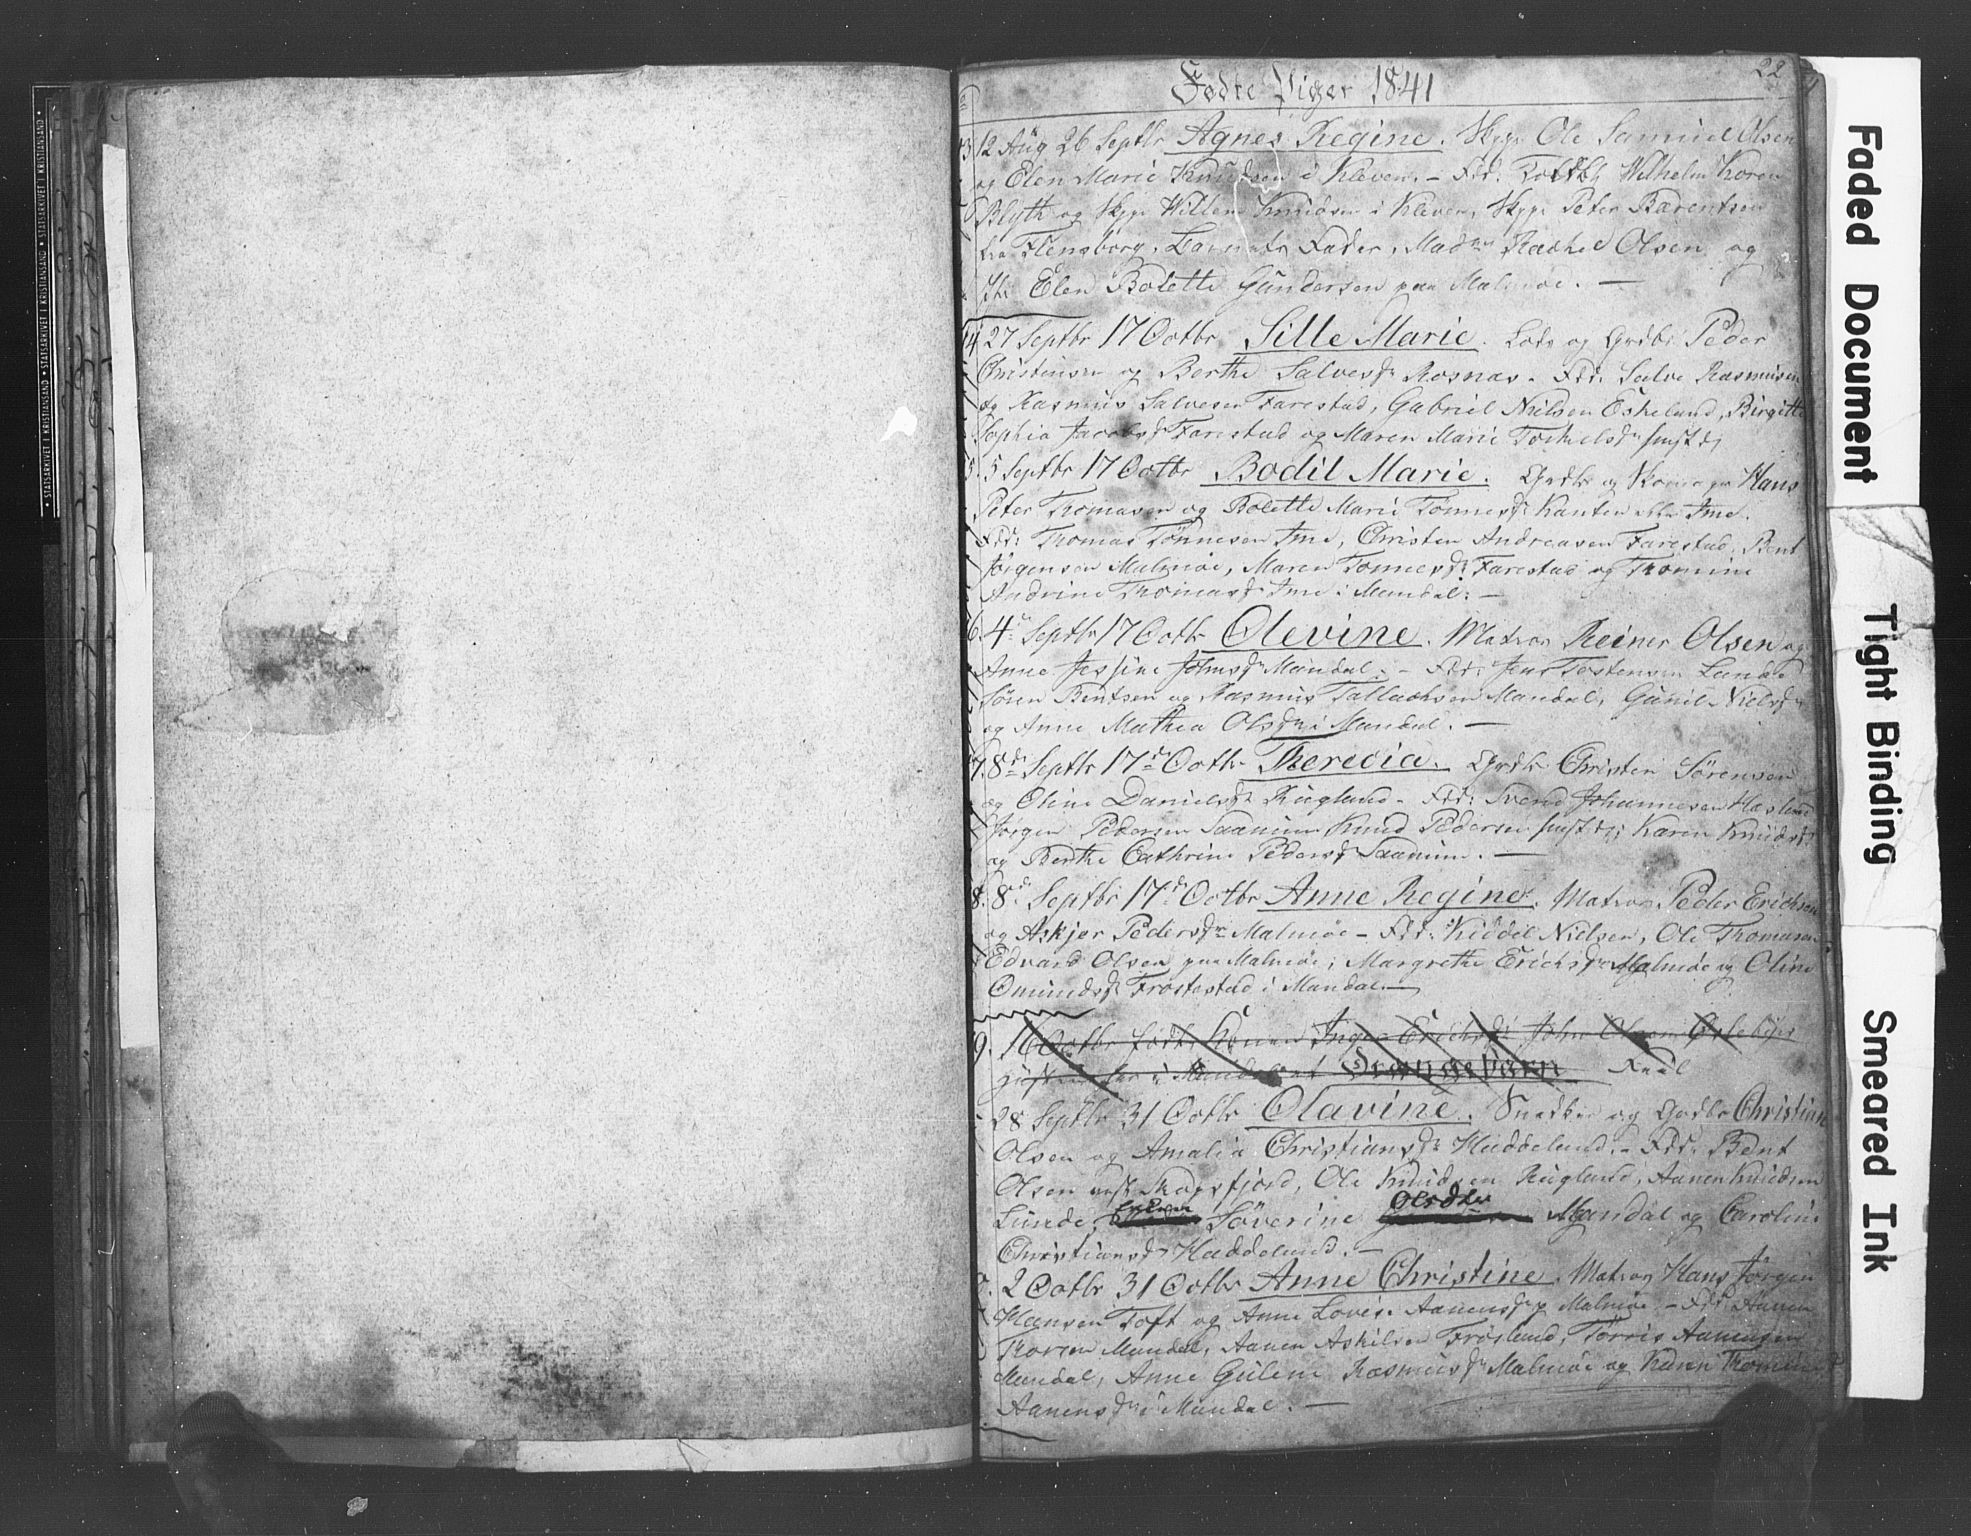 22
Fødte Piger 1841
12 Aug 26 Septbr Agnes Regine. Skpp. Ole Samuel Olsen
og Elen Marie Knudsen i Kleven. – Fdd: Toldb. Wilhelm Koren
Blyth og Skpp. Willem Knudsen i Kleven, Skpp: Peter Bærentsen
fra Flensborg, Barnets Fader, Mad: Rachel Olsen og
Elen Bolette Gundersen paa Malmøe. –
14 27 Septbr 17 Octbr Sille Marie. Lods og Grdbr Peder
Christensen og Berthe Salvesdr Rosnæs. Fdd: Salve Rasmusen
og Rasmus Salvesen Farestad, Gabriel Nielsen Eskelund, Birgitte
Sophia Jacobsdr Farestad og Maren Marie Torkelsdr
5 Septbr 17 Octbr Bodil Marie. Grdbr og Hans
Peter Thomasen og Bolette Marie Tønnesdr Ime.
Fdd: Thomas Tønnesen Ime, Christen Andreasen Farestad, Bent
Jørgensen Malmøe, Maren Tønnesdr Farestad og Thomine
Andrine Thomasdr Ime i Mandal. –
6. 4de Septbr 17 Octbr Olevine. Matros Reiner Olsen og
Anne Jessine Johnsdr Mandal. – Fdd: Jens Tostensen Lande
Søren Bentsen og Rasmus Tallachsen Mandal, Gunil Nielsdr
og Anne Mathea Olsdr i Mandal. –
7. 8de Septbr 17de Octbr Therecia. Grdbr Christen Sørensen
og Oline Danielsdr Rugland – Fdd: Svend Johannesen
Jørgen Pedersen Saanum Knud Pedersen Karen Knudsdr
og Berthe Cathrine Pedersdr Saanum. –
8. 8de Septbr 17de Octbr Anne Regine. Matros Peder Erichsen
og Askjer Pedersdr Malmøe – Fdd: Kiddel Nielsen, Ole Thomasen
Edvard Olsen paa Malmøe, Margrethe Erichsdr Malmøe og Oline
Omundsdr Frøstestad i Mandal. –
9. 16 Octbr fødte Konen Inger Erichsdr John Olsen
i Mandal et Drengebarn
28 Septbr 31 Octbr Olavine. Snedker og Grdbr Christian
Olsen og Amalia Christiansdr Haddeland. – Fdd: Bent
Olsen Skogsfjord, Ole Knudsen Rugland, Aanen Knudsen
Lunde, Søverine Olsdtr Mandal og Caroline
Christiansdr Haddeland. –
2 Octbr 31 Octbr Anne Christine. Matros Hans Jørgen
Hansen Toft og Anne Lovise Aanensdr p Malmøe – Fdd: Aanen
Thorsen Mandal, Aanen Askilsen Frøslund, Tørris Aanensen
Mandal, Anne Gulene Rasmusdr Malmøe og Karen Thomine
Aanensdr i Mandal. –
Faded Document
Tight Binding
Smeared Ink
STATSARKIVET I KRISTIANSAND • STATSARKIVET I KRISTIANSAND • STATSARKIVET I KRISTIANSAND • STATSARKIVET I KRISTIANSAND •